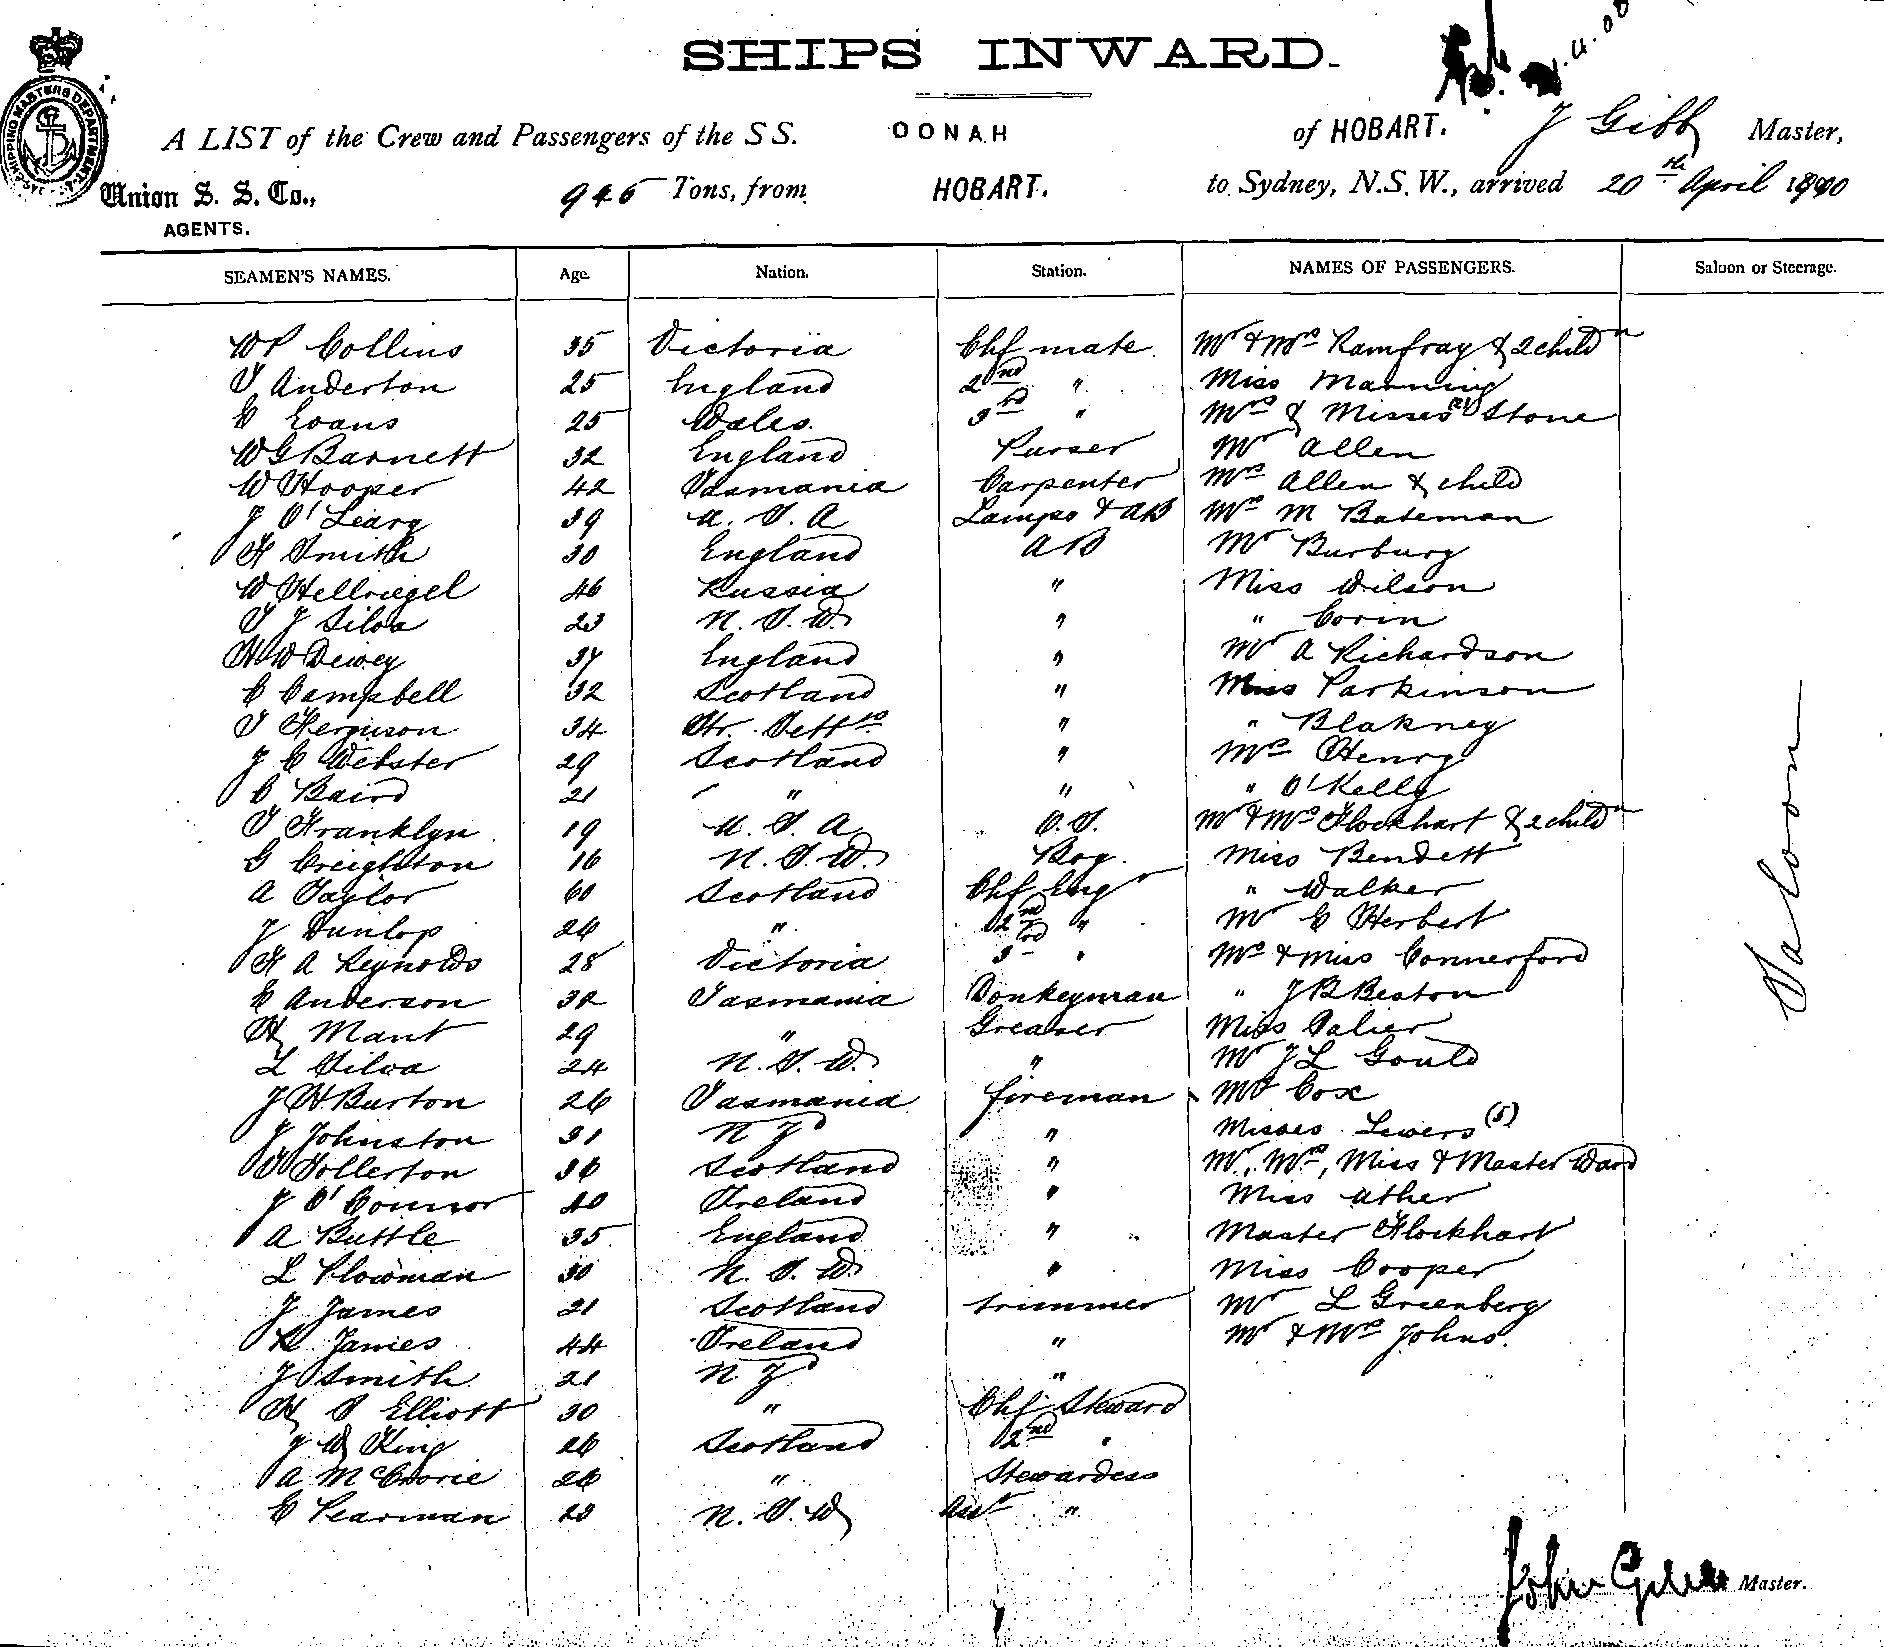 SHIPS INWARD.
SHIPPING MASTERS DEPARTMENT
A LIST of the Crew and Passengers of the SS. OONAH of HOBART. J Gibb Master,
Union S. S. Co., 946 Tons, from HOBART. to Sydney, N.S.W., arrived 20th April 1900
AGENTS.
SEAMEN'S NAMES. Age. Nation. Station. NAMES OF PASSENGERS. Saloon or Steerage.
WP Collins 35 Victoria Chf mate Mr & Mrs Ramfray & 2 childn
T Anderton 25 England 2nd " Miss Manning
E Evans 25 Wales. 3rd " Mrs & Misses (2) Stone
WG Barnett 32 England Purser Mr Allen
W Hooper 42 Tasmania Carpenter Mrs Allen & child
J O'Leary 39 U. S. A Lamps & AB Mrs M Bateman
H Smith 30 England AB Mr Burbury
W Hellriegel 46 Russia " Miss Wilson
T J Silva 23 N. S. W. " " Corin
HW Dewey 37 England " Mr A Richardson
C Campbell 32 Scotland " Miss Parkinson
T Ferguson 34 Str. Setts " " Blakney
J C Webster 29 Scotland " Mrs Henry
C Baird 21 " " " O'Kelly
T Franklyn 19 U. S. A O.S. Mr & Mrs Flockhart & 2 childn
G Creighton 16 N. S. W. Boy. Miss Bendett
A Taylor 60 Scotland Chf Engr " Walker
J Dunlop 26 " 2nd " Mr C Herbert
H A Reynolds 28 Victoria 3rd " Mrs & Miss Connerford
C Anderson 32 Tasmania Donkeyman " J B Beston
H Mant 29 " Greaser Miss Palier
L Silva 24 N. S. W. " Mr J L Gould
J H Burton 26 Tasmania fireman Mr Cox
J Johnston 31 N Z " Misses Lewers (5)
T Tollerton 36 Scotland " Mr, Mrs, Miss & Master Ward
J O'Connor 40 Ireland " Miss Ather
A Buttle 35 England " Master Flockhart
L Plowman 30 N. S. W. " Miss Cooper
J James 21 Scotland trimmer Mr L Greenberg
James 44 Ireland " Mr & Mrs Johns.
J Smith 21 N Z "
H S Elliott 30 " Chf Steward
J W King 26 Scotland 2nd "
A McCrorie 26 " Stewardess
C Pearman 23 N. S. W Asst "
Saloon
John Gibb Master.